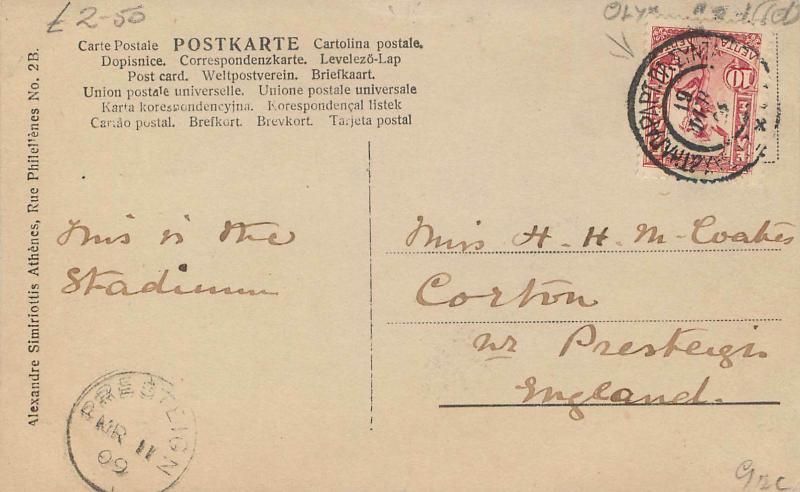 £2-50
Carte Postale POSTKARTE Cartolina postale.
Dopisnice. Correspondenzkarte. Levelező-Lap
Post card. Weltpostverein. Briefkaart.
Union postale universelle. Unione postale universale
Karta korespondencyjna. Korespondençal listek
Cartão postal. Brefkort. Brevkort. Tarjeta postal
Alexandre Simiriottis Athènes, Rue Philellènes No. 2B.
10
ΛΕΠΤΑ
This is the
Stadium
Miss H. H. M-Coates
Corton
nr Presteign
England.
PRESTEIGN
MR 11
09